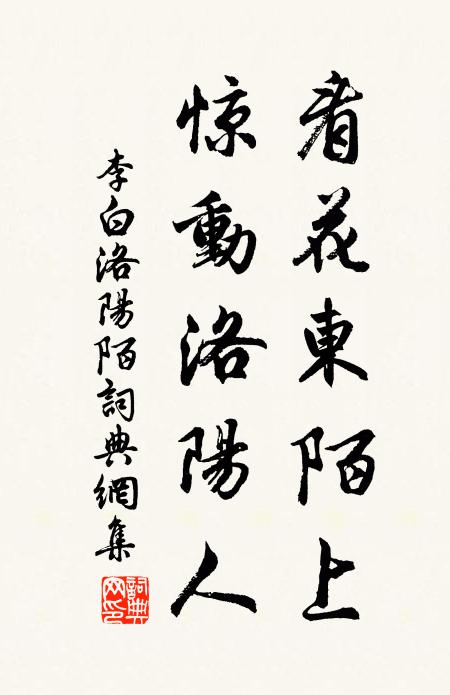 看花東陌上
惊動洛陽人
李白洛陽陌詞典網集
詞典
网印